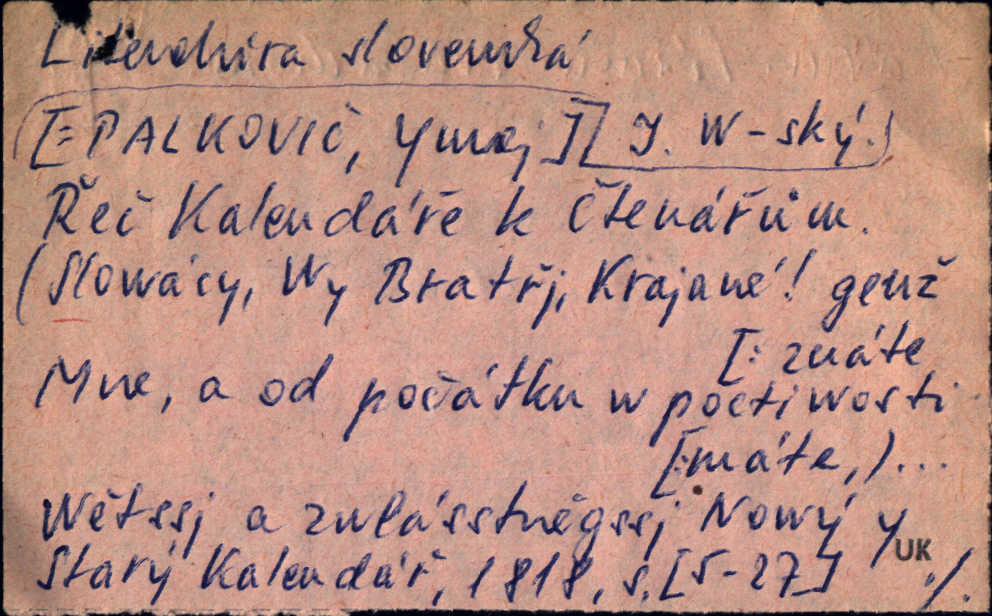 Literatúra slovenská
[:PALKOVIČ, Juraj:][J. W-ský.]
Řeč Kalendáře k Čtenářům.
(Slowácy, Wy Bratřj, Krajané! genž
[: znáte
Mne, a od počátku w poctiwosti
[:máte,)...
Wětssj a zwlásstněgssj Nowý y
Starý Kalendář, 1818, s.[5-27] ./.
UK